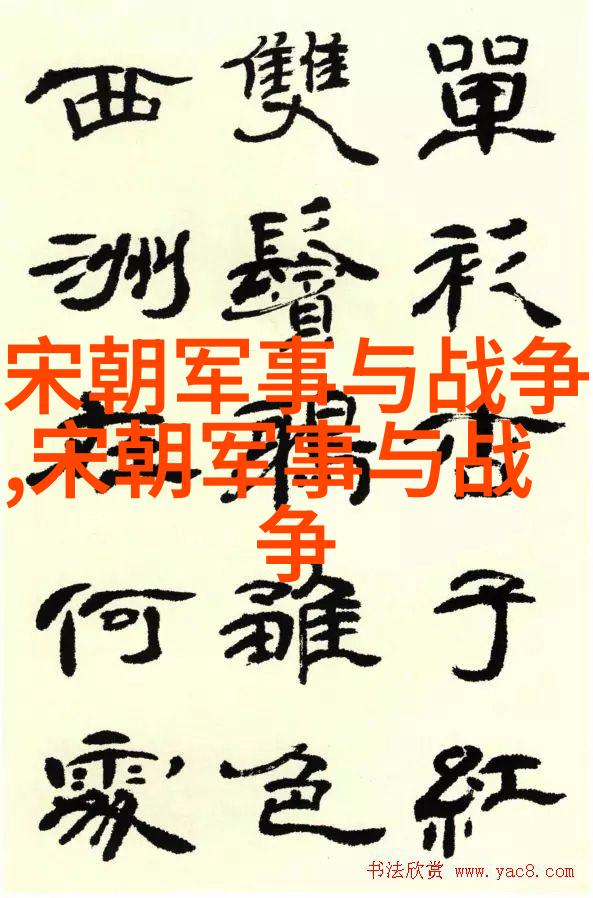 單衫杏子紅
雙鬢鴉雛色
西洲在何處
宋朝军事与战争
,宋朝军事与战
争
书法欣赏 www.yac8.com